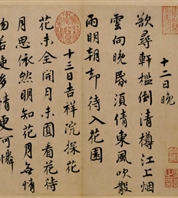 十二日晚
欲尋軒檻倒清樽江上煙
雲向晚昏須倩東風吹散
雨明朝却待入花園
十三日吉祥院探花
花未全開月未圓看花待
月思依然明知花月無情
物若使多情更可憐